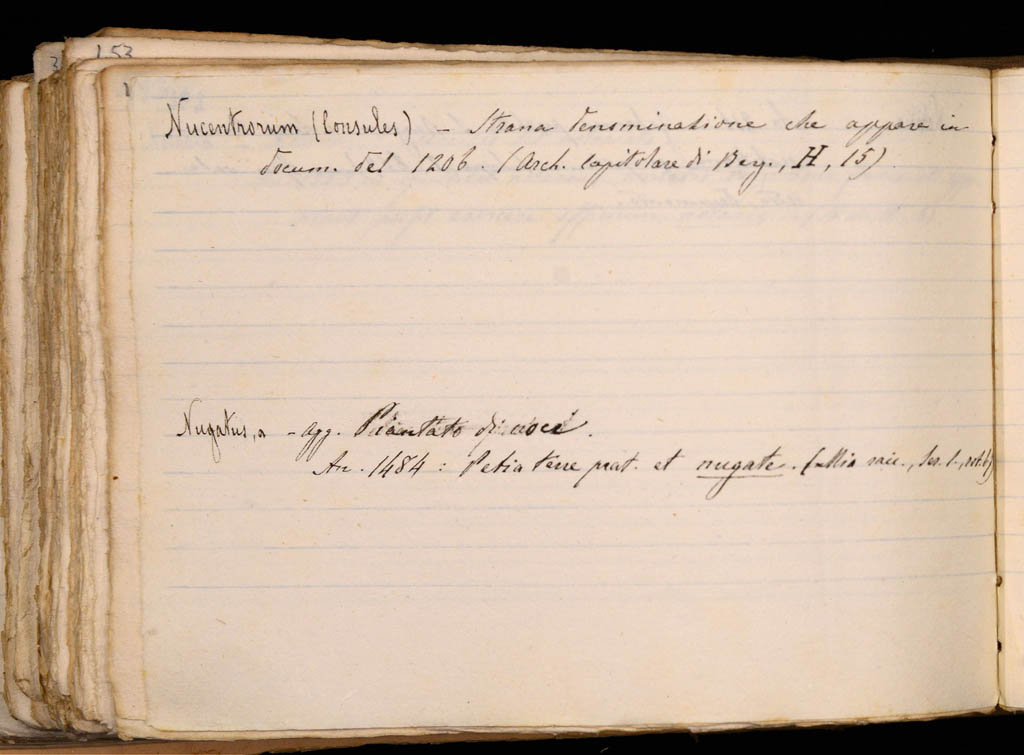 153
Nucentrorum (Consules) - Strana denominazione che appare in
docum. del 1206. (Arch. Capitolare di Berg., H, 15)
Nugatus, a - agg. Piantato di noci.
An. 1484: Petia terre prat. et nugate. (Mia racc., Ser. 1., rot. 6)